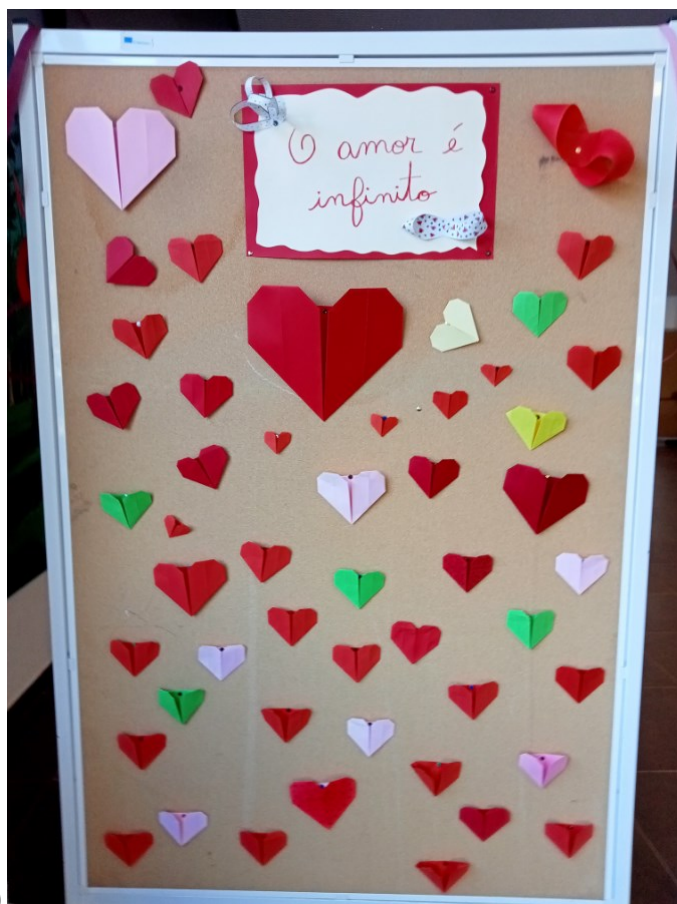 O amor é
infinito